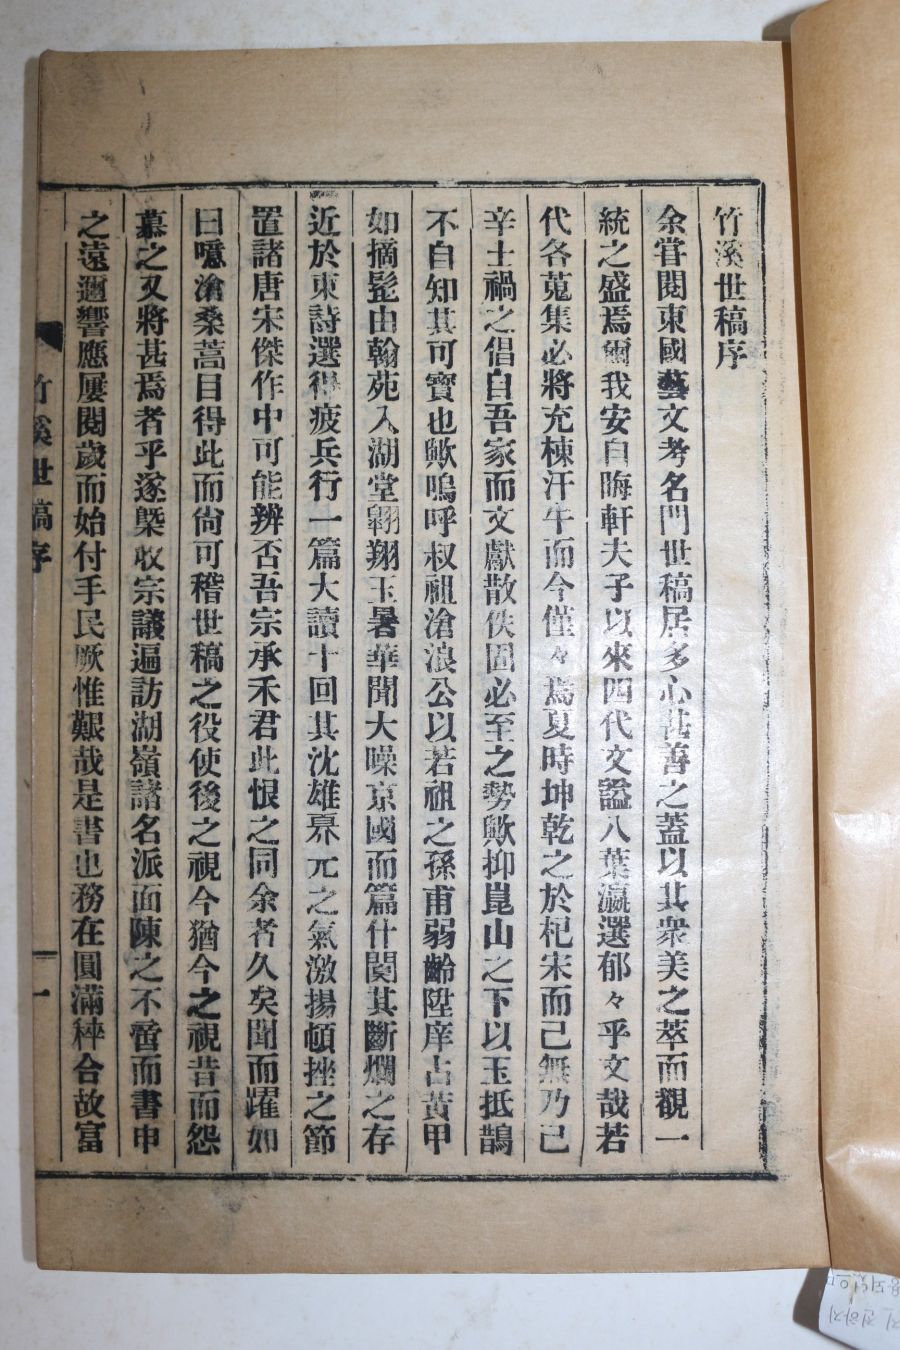 竹溪世稿序
余嘗閱東國藝文考名門世稿居多心甚善之蓋以其衆美之萃而觀一
統之盛焉爾我安自晦軒夫子以來四代文謚八葉瀛選郁々乎文哉若
代各蒐集必將充棟汗牛而今僅々焉夏時坤乾之於杞宋而已無乃已
辛士禍之倡自吾家而文獻散佚固必至之勢歟抑崑山之下以玉抵鵲
不自知其可寶也歟嗚呼叔祖滄浪公以若祖之孫甫弱齡陞庠占黃甲
如摘髭由翰苑入湖堂翱翔玉署華聞大噪京國而篇什闋其斷爛之存
近於東詩選得疲兵行一篇大讀十回其沈雄昦元之氣激揚頓挫之節
置諸唐宋傑作中可能辨否吾宗承禾君此恨之同余者久矣聞而躍如
曰噫滄桑蒿目得此而尙可稽世稿之役使後之視今猶今之視昔而怨
慕之又將甚焉者乎遂槩收宗議遍訪湖嶺諸名派面陳之不啻而書申
之遠邇響應屢閱歲而始付手民厥惟艱哉是書也務在圓滿稡合故富
竹溪世稿序
一